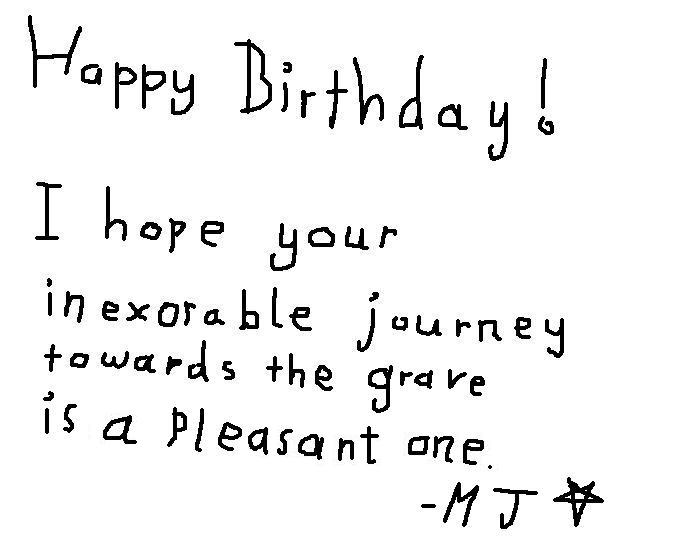 Happy Birthday!
I hope your
inexorable journey
towards the grave
is a pleasant one.
-MJ